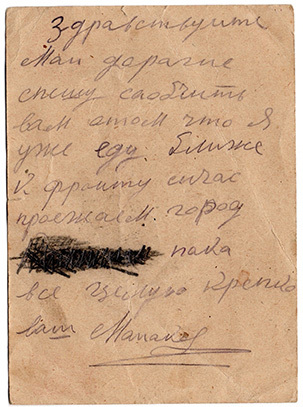 Здравствуйте
Маи дорагие
спешу саобчить
вам атом что я
уже еду. ближе
й фронту сичас
праежаем. город
пака
все целую крепко
ваш